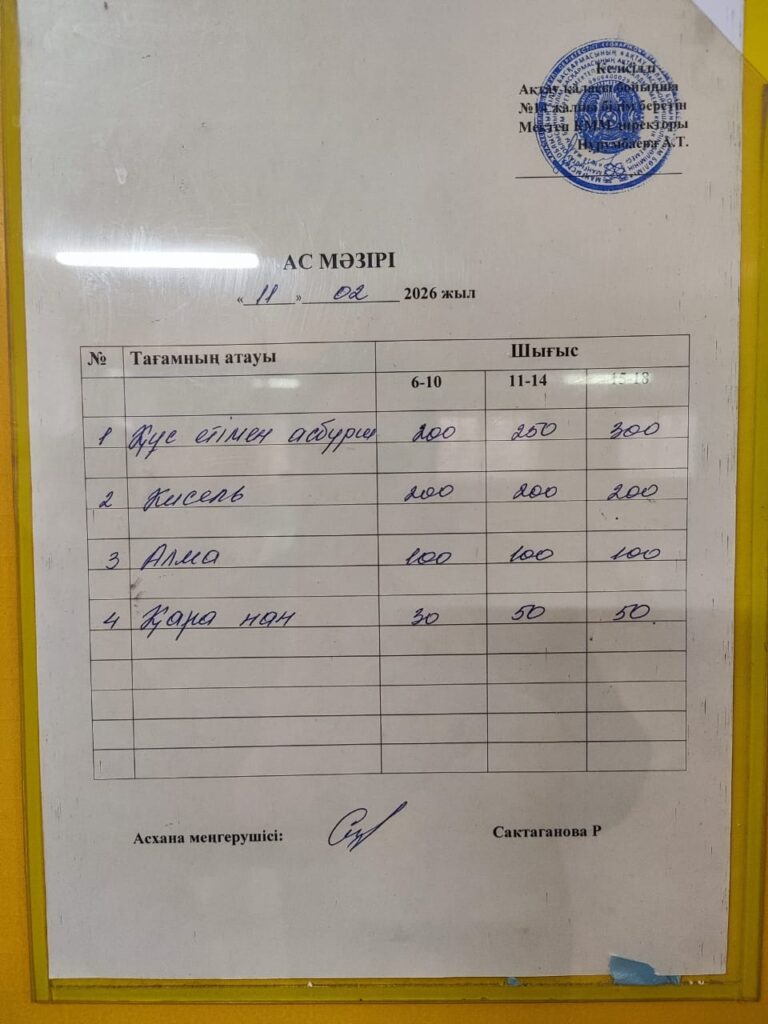 Келісілді
Ақтау қаласы бойынша
№14 жалпы білім беретін
Мектеп КММ директоры
Нурумбаева А.Т.
АС МӘЗІРІ
«11» 02 2026 жыл
№ Тағамның атауы Шығыс
6-10 11-14 15-18
1 Құс етімен асбұрш 200 250 300
2 Кисель 200 200 200
3 Алма 100 100 100
4 Қара нан 30 50 50
Асхана меңгерушісі: Сактаганова Р